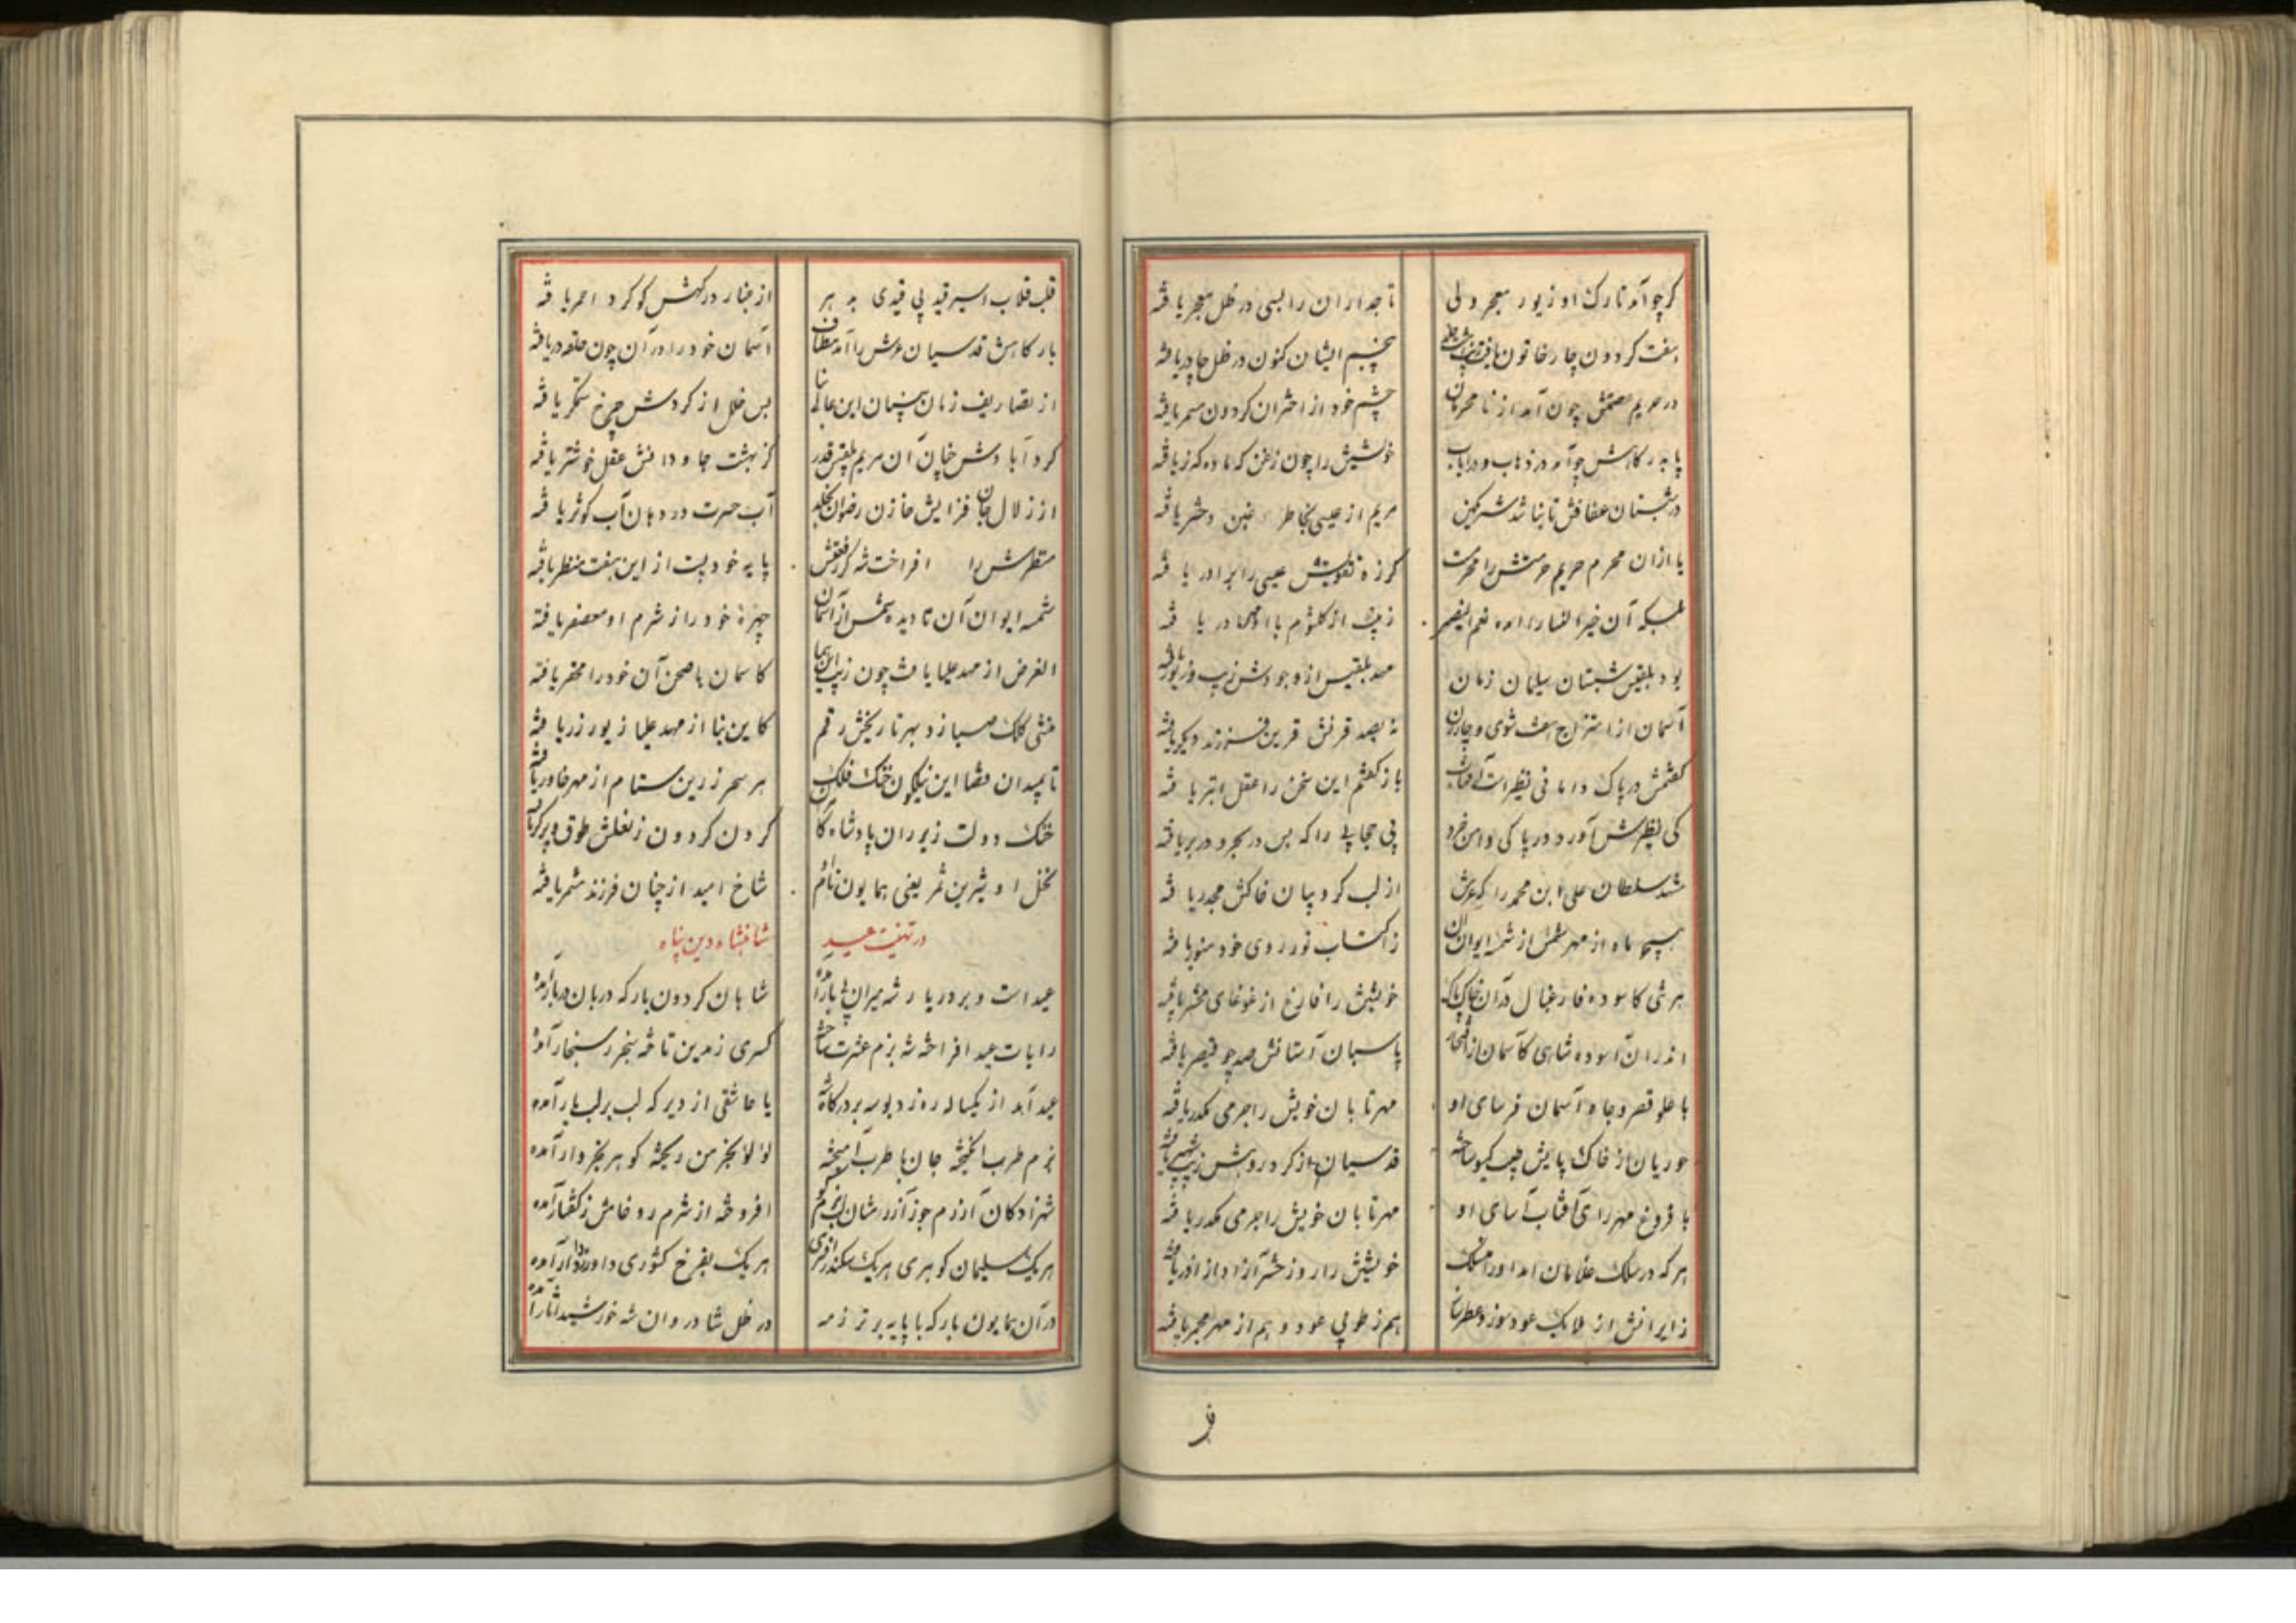 کرچو آمد تارک او زیور معجر ولی تاجداران را بسی در ظل معجر یافته
هفت کردون چار خاتون یافت بچشم ایشان کنون در ظل چادر یافته
در حریم عصمتش چون آمد از نامحرمان چشم خود از اختران کردون مسمر یافته
خویشتن را چون زغن که ماده که نر یافته
در شبستان عفافش تا نباشد شرمکین مریم از عیسی بخاطر غبن دختر یافته
یا از آن محرم حریم حرمتش را محرمست کز ره تقویتش عیسی را برادر یافته
بسکه آن خیر النسا را زینب از کلثوم یا او همام در یافته
بود بلقیس شبستان سلیمان زمان مهد بلقیس از وجودش زیب و زیور یافته
آسمان از امتزاج هفت شوی و چار زن نه بصد قرنش قرین فرزند دیکر یافته
کفتمش در پاک دامانی نظیر است آفتاب باز کفتم این سخن را عقل ابتر یافته
کی نظیرش آورد در پاکی دامن خرد بی حجابی را که بس در بحر و در بر یافته
شد سلطان علی ابن محمد را که عرش از لب کروبیان خاکش مجدر یافته
ماه از مهر شمس از شمسه ایوان آن ز اکتساب نور روی خود منور یافته
هر شی کاسوده فارغبال در آن خاک پاک خویشتن را فارغ از غوغای محشر یافته
اندر آن آسوده شاهی کآسمان از پاسبان آستانش صد چو قیصر یافته
با علو قصر و جاه آسمان فرسای او مهر تابان خویش را جرمی مکدر یافته
حوریان از خاک پایش جیب کیسو ساخته قدسیان از کرد روبش زیب شهپر یافته
با فروغ مهر رای آفتاب آسای او مهر تابان خویش را جرمی مکدر یافته
هر که در سلک غلامان آمد او را منسلک خویشتن را روز حشر آزاد از آذر یافته
زایرانش از ملایک عود سوز و عطرسا هم ز طوبی عود و هم از مهر مجمر یافته
قلب قلاب اسیر قید بی قیدی به هر از غبار درکهش کوکرد احمر یافته
بارکاهش قدسیان عرش را آمد مطاف آسمان خود را در آن چون حلقه در یافته
از تصاریف زمان این عالی بنا بس خلل از کردش چرخ ستمکر یافته
کرد آبادش چنان آن مریم بلقیس قدر کز بهشت جاودانش عقل خوشتر یافته
از زلال جان فزایش خازن رضوان بخلد آب حسرت در دهان آب کوثر یافته
منظرش را افراخت شه کز رفعتش پایه خود پست از این هفت منظر یافته
شمسه ایوان آن تا دیده شمس از آسمان چهره خود را ز شرم او معصفر یافته
الغرض از مهد علیا یافت چون زیب این بنا کاسمان با صحن آن خود را محقر یافته
منشی کلک صبا زد بهر تاریخش رقم کاین بنا از مهد علیا زیور زر یافته
تا بمیدان فضا این نیلکون خنک فلک هر سحر زرین ستام از مهر خاور یافته
خنک دولت زیر ران پادشاه کردن کردون ز نعلش طوق و پرکر یافته
نخل او شیرین ثمر یعنی همایون نام او شاخ امید از چنان فرزند مثمر یافته
در تهنیت عید شاهنشاه دین پناه
عید است و بر دربار شه میران پی بار آمده شاهان کردون بارکه دربان دربار آمده
رایات عید افراخته شه بزم عشرت ساخته کسری زمین تاخته سنجر ز سنجار آمده
عید آمد از یکساله ره زد بوسه بر درکاه شه یا عاشقی از دیر که لب بر لب یار آمده
بزم طرب انکیخته جان با طرب آمیخته لؤلؤ بخرمن ریخته کوهر بخروار آمده
شهزادکان آزرم جو ز آزرمشان افروخته از شرم رو خامش ز کفتار آمده
هر یک سلیمان کوهری هر یک سکندر افسری هر یک بفرخ کشوری دارا و دادار آمده
در آن همایون بارکه با پایه برتر ز مه در ظل شادروان شه خورشید آثار آمده